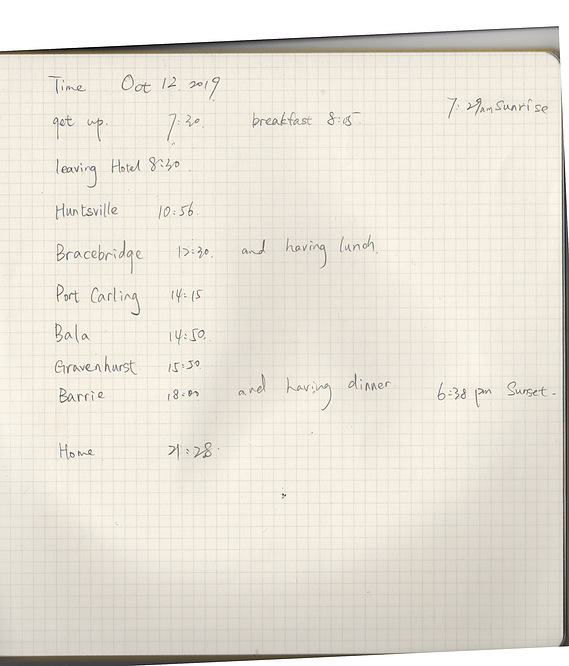 Time Oct 12. 2019
7:29am Sunrise
get up. 7:30. breakfast 8:05.
leaving Hotel 8:30.
Huntsville 10:56.
Bracebridge 12:30. and having lunch.
Port Carling 14:15
Bala 14:50.
Gravenhurst 15:50.
Barrie 18:00 and having dinner 6:38 pm Sunset.
Home 21:28.